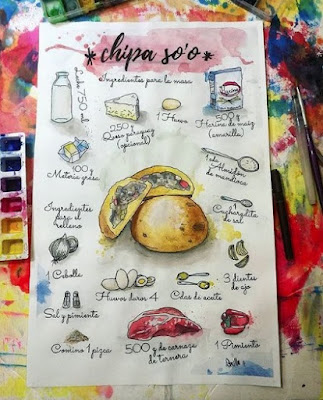 *chipa so'o*
Ingredientes para la masa
Leche 750 ml
250 g
Queso paraguay
(opcional)
1 Huevo
500 g
Harina de maíz
(amarilla)
100 g
Materia grasa
1 cda Almidón
de mandioca
1
Cucharadita de
sal
Ingredientes
para el
relleno
1 Cebolla
Huevos duros 4
Cdas de aceite
3 dientes
de ajo
Sal y pimienta
Comino 1 pizca
500 g de carnaza
de ternera
1 Pimiento